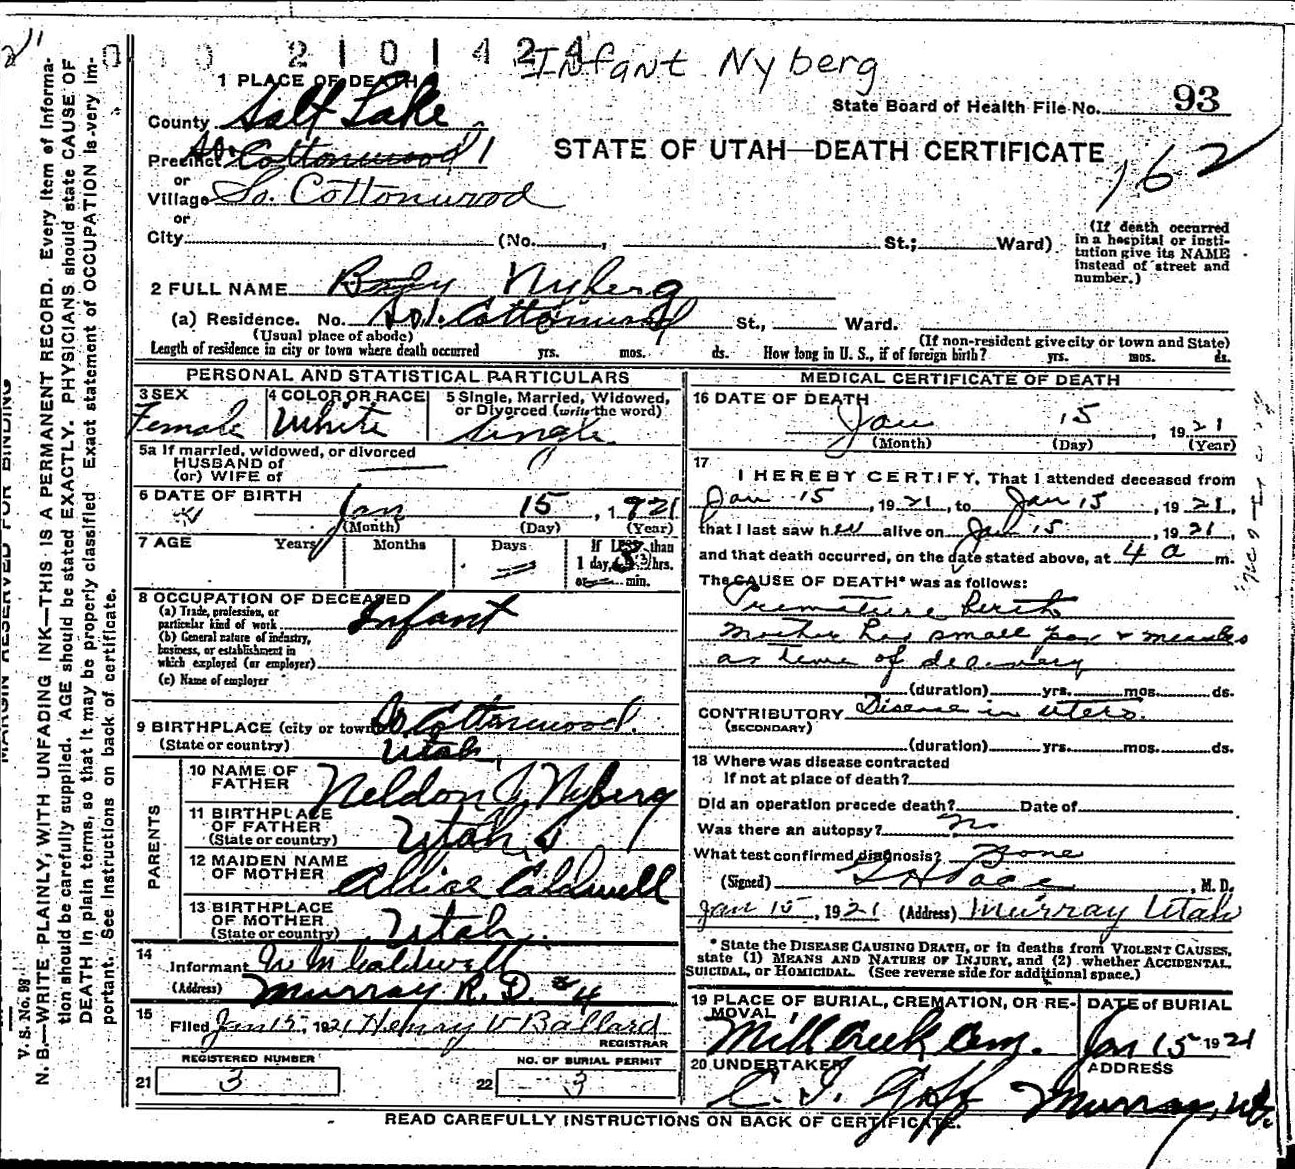 2101424
Infant Nyberg
1 PLACE OF DEATH
State Board of Health File No. 93
County Salt Lake
STATE OF UTAH—DEATH CERTIFICATE
162
Precinct So. Cottonwood 1
or
Village So. Cottonwood
or
City (No. , St.; Ward)
(If death occurred in a hospital or insti-
tution give its NAME
instead of street and
number.)
2 FULL NAME Baby Nyberg
(a) Residence. No. So. Cottonwood St., Ward.
(Usual place of abode)
(If non-resident give city or town and State)
Length of residence in city or town where death occurred yrs. mos. ds. How long in U. S., if of foreign birth? yrs. mos. ds.
PERSONAL AND STATISTICAL PARTICULARS
3 SEX
Female
4 COLOR OR RACE
White
5 Single, Married, Widowed,
or Divorced (write the word)
Single
5a If married, widowed, or divorced
HUSBAND of
(or) WIFE of
6 DATE OF BIRTH
Jan 15, 1921
(Month) (Day) (Year)
7 AGE Years Months Days If LESS than
1 day, hrs.
or min.
8 OCCUPATION OF DECEASED
(a) Trade, profession, or
particular kind of work Infant
(b) General nature of industry,
business, or establishment in
which employed (or employer)
(c) Name of employer
9 BIRTHPLACE (city or town) So Cottonwood
(State or country) Utah
PARENTS
10 NAME OF
FATHER Neldon J. Nyberg
11 BIRTHPLACE
OF FATHER
(State or country) Utah
12 MAIDEN NAME
OF MOTHER Allice Caldwell
13 BIRTHPLACE
OF MOTHER
(State or country) Utah
14
Informant W M Caldwell
(Address) Murray R. D. #4
15
Filed Jan 15, 1921 Henry W Ballard
REGISTRAR
REGISTERED NUMBER
21 3
NO. OF BURIAL PERMIT
22 3
MEDICAL CERTIFICATE OF DEATH
16 DATE OF DEATH
Jan 15, 1921
(Month) (Day) (Year)
17
I HEREBY CERTIFY, That I attended deceased from
Jan 15, 1921, to Jan 15, 1921,
that I last saw her alive on Jan 15, 1921,
and that death occurred, on the date stated above, at 4 a m.
The CAUSE OF DEATH* was as follows:
Premature birth
Mother has small pox & measles
as time of delivery
(duration) yrs. mos. ds.
CONTRIBUTORY Disease in utero.
(SECONDARY)
(duration) yrs. mos. ds.
18 Where was disease contracted
If not at place of death?
Did an operation precede death? Date of
Was there an autopsy? no
What test confirmed diagnosis? None
(Signed) , M. D.
Jan 15, 1921 (Address) Murray Utah
*State the DISEASE CAUSING DEATH, or in deaths from VIOLENT CAUSES,
state (1) MEANS AND NATURE OF INJURY, and (2) whether ACCIDENTAL,
SUICIDAL, or HOMICIDAL. (See reverse side for additional space.)
19 PLACE OF BURIAL, CREMATION, OR RE-
MOVAL
Mill Creek Cem.
DATE of BURIAL
Jan 15 1921
20 UNDERTAKER
C. J. Goff
ADDRESS
Murray, Ut.
READ CAREFULLY INSTRUCTIONS ON BACK OF CERTIFICATE.
MARGIN RESERVED FOR BINDING
V. S. No. 98
N. B.—WRITE PLAINLY, WITH UNFADING INK—THIS IS A PERMANENT RECORD. Every item of informa-
tion should be carefully supplied. AGE should be stated EXACTLY. PHYSICIANS should state CAUSE OF
DEATH in plain terms, so that it may be properly classified. Exact statement of OCCUPATION is very im-
portant. See instructions on back of certificate.